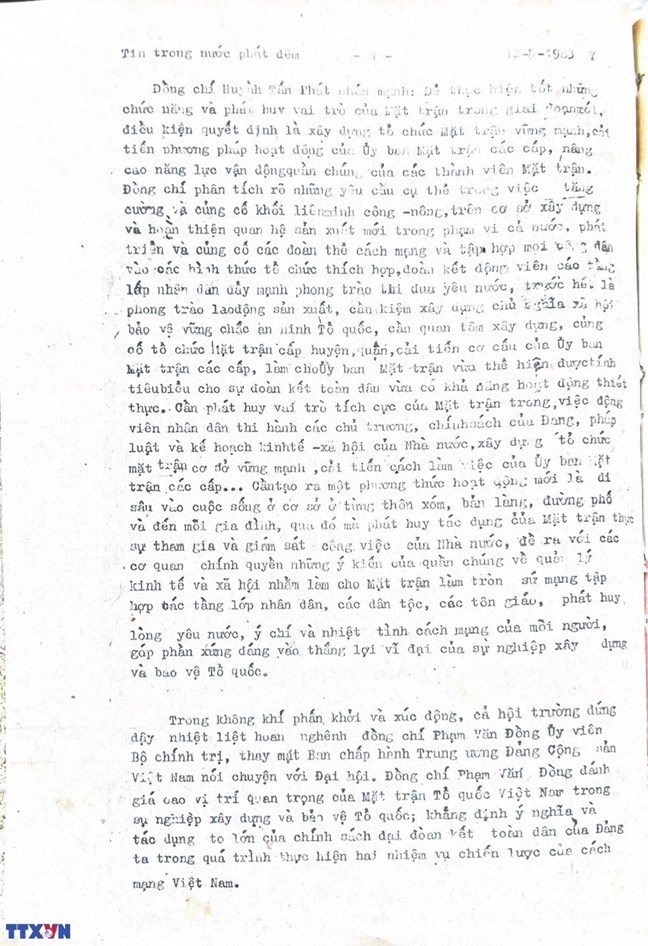 Tin trong nước phát đêm - 4 - 12-5-1983 Y
Đồng chí Huỳnh Tấn Phát nhấn mạnh: Để thực hiện tốt những
chức năng và phát huy vai trò của Mặt trận trong giai đoạn
điều kiện quyết định là xây dựng tổ chức Mặt trận vững mạnh,cải
tiến phương pháp hoạt động của Ủy ban Mặt trận các cấp, nâng
cao năng lực vận độngquần chúng của các thành viên Mặt trận.
Đồng chí phân tích rõ những yêu cầu cụ thể trong việc tăng
cường và củng cố khối liênminh công -nông,trên cơ sở xây dựng
và hoàn thiện quan hệ sản xuất mới trong phạm vi cả nước, phát
triển và củng cố các đoàn thể cách mạng và tập hợp mọi công dân
vào các hình thức tổ chức thích hợp,đoàn kết động viên các tầng
lớp nhân dân đẩy mạnh phong trào thi đua yêu nước, trước hết là
phong trào laođộng sản xuất, cần kiệm xây dựng chủ nghĩa xã hội
bảo vệ vững chắc an ninh Tổ quốc, cần quan tâm xây dựng, củng
cố tổ chức Mặt trận cấp huyện,quận,cải tiến cơ cấu của Ủy ban
Mặt trận các cấp, làm choỦy ban Mặt trận vừa thể hiện đượctính
tiêubiểu cho sự đoàn kết toàn dân vừa có khả năng hoạt động thiết
thực. Cần phát huy vai trò tích cực của Mặt trận trong,việc động
viên nhân dân thi hành các chủ trương, chínhsách của Đảng, pháp
luật và kế hoạch kinhtế -xã hội của Nhà nước,xây dựng tổ chức
mặt trận cơ đở vững mạnh ,cải tiến cách làm việc của Ủy ban Mặt
trận các cấp... Cầntạo ra một phương thức hoạt động mới là đi
sâu vào cuộc sống ở cơ sở ở từng thôn xóm, bản làng, đường phố
và đến mỗi gia đình, qua đó mà phát huy tác dụng của Mặt trận thực
sự tham gia và giám sát công việc của Nhà nước, đề ra với các
cơ quan chính quyền những ý kiến của quần chúng về quản lý
kinh tế và xã hội nhằm làm cho Mặt trận làm tròn sứ mạng tập
hợp các tầng lớp nhân dân, các dân tộc, các tôn giáo, phát huy
lòng yêu nước, ý chí và nhiệt tình cách mạng của mỗi người,
góp phần xứng đáng vào thắng lợi vĩ đại của sự nghiệp xây dựng
và bảo vệ Tổ quốc.
Trong không khí phấn khởi và xúc động, cả hội trường đứng
dậy nhiệt liệt hoan nghênh đồng chí Phạm Văn Đồng Ủy viên
Bộ chính trị, thay mặt Ban chấp hành Trung ương Đảng Cộng sản
Việt Nam nói chuyện với Đại hội. Đồng chí Phạm Văn Đồng đánh
giá cao vị trí quan trọng của Mặt trận Tổ quốc Việt Nam trong
sự nghiệp xây dựng và bảo vệ Tổ quốc; khẳng định ý nghĩa và
tác dụng to lớn của chính sách đại đoàn kết toàn dân của Đảng
ta trong quá trình thực hiện hai nhiệm vụ chiến lược của cách
mạng Việt Nam.
TTXVN